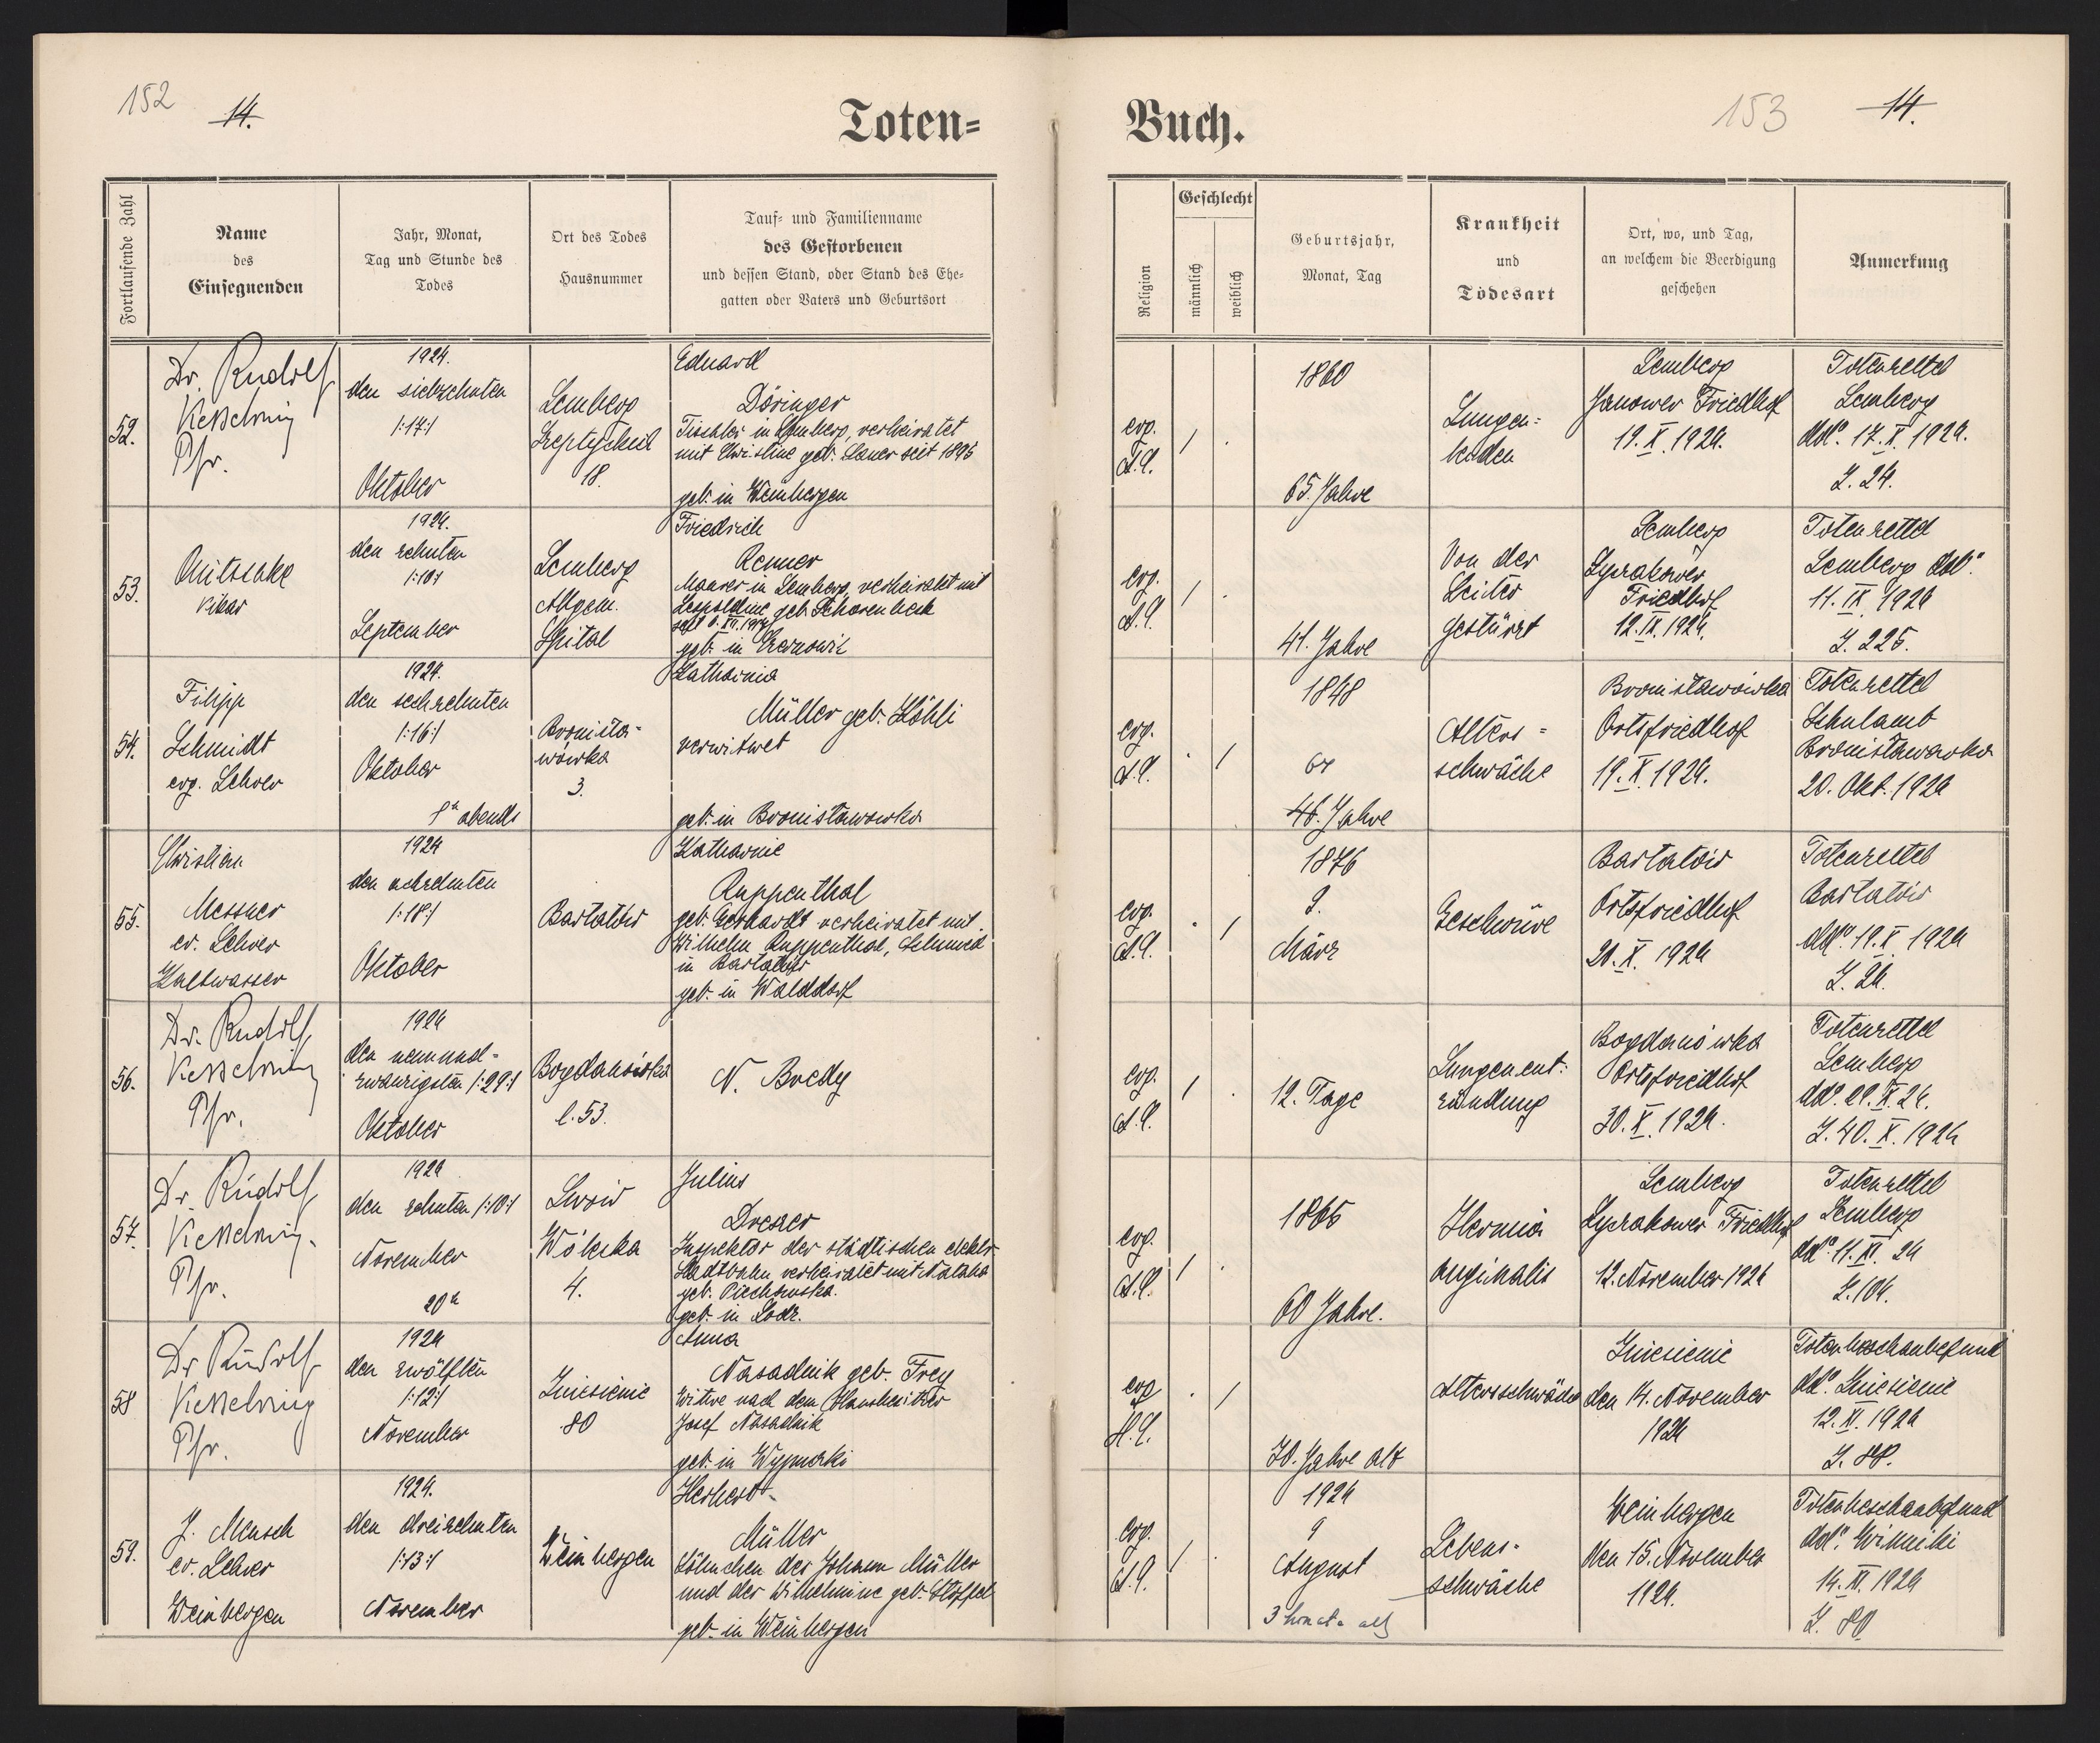 152
14.
Toten=
Buch.
153
14.
Fortlaufende Zahl
Name
des
Einsegnenden
Jahr, Monat,
Tag und Stunde des
Todes
Ort des Todes
Hausnummer
Tauf= und Familienname
des Gestorbenen
und dessen Stand, oder Stand des Ehe=
gatten oder Vaters und Geburtsort
Religion
Geschlecht
männlich
weiblich
Geburtsjahr,
Monat, Tag
Krankheit
und
Todesart
Ort, wo, und Tag,
an welchem die Beerdigung
geschehen
Anmerkung
52.
Dr. Rudolf
Kesselring
Pfr.
1924.
den siebzehnten
/:17:/
Oktober
Lemberg
18.
Eduard
Döringer
Tischler in Lemberg, verheiratet
mit Christine geb. Lauer seit 1895
geb. in Weinbergen
evg.
A.C.
/ .
1860
65. Jahre
Lungen=
leiden
Lemberg
Janower Friedhof
19. X. 1924.
Totenzettel
Lemberg
ddo. 17. X. 1924.
Z. 24.
53.
Vikar
1924.
den zehnten
/:10:/
September
Lemberg
Allgem.
Spital
Friedrich
Renner
Maurer in Lemberg, verheiratet mit
Leopoldine geb.
geb. in
evg.
A.C.
/ .
41. Jahre
Von der
Leiter
gestürzt
Lemberg
Lyczakower
Friedhof
12. IX. 1924.
Totenzettel
Lemberg ddo.
11. IX. 1924
Z. 225.
54.
Filipp
Schmidt
evg. Lehrer
1924.
den sechzehnten
/:16:/
Oktober
8h abends
Bronisła-
wówka
3.
Katharina
Müller geb. Köhli
verwitwet
geb. in Bronisławowka
evg.
A.C.
. /
1848
46. Jahre
Alters =
schwäche
Bronisławówka
Ortsfriedhof
19. X. 1924.
Totenzettel
Schulamt
Bronisławowka
20. Okt. 1924
55.
Christian
Messner
ev. Lehrer
Kaltwasser
1924
den achzehnten
/:18:/
Oktober
Bartatów
Katharine
Ruppenthal
geb. Gerhardt verheiratet mit
Wilhelm Ruppenthal, Schmied
in Bartatów
geb. in Walddorf
evg.
A.C.
. /
1876
9.
März
Geschwüre
Bartatów
Ortsfriedhof
20. X. 1924
Totenzettel
Bartatów
ddo. 19. X. 1924
Z. 24.
56.
Dr. Rudolf
Kesselring
Pfr.
1924
den neunund-
zwanzigsten /:29:/
Oktober
Bogdanówka
l. 53.
N. Bredy
evg.
A.C.
/ .
12. Tage
Lungenent:
zündung
Bogdanówka
Ortsfriedhof
30. X. 1924.
Totenzettel
Lemberg
ddo. 29. X. 24.
Z. 40. X. 1924
57.
Dr. Rudolf
Kesselring.
Pfr.
1924
den zehnten /:10:/
November
20h
Lwów
Wólecka
4.
Julius
Drexler
Inspektor der städtischen elektr.
Stadtbahn verheiratet mit Natalia
geb. Piechowska.
geb. in Lodz.
evg.
A.C.
/ .
1865
60 Jahre.
Hernia
Lemberg
Lyczakower Friedhof
12. November 1924
Totenzettel
Lemberg
ddo. 11. XI. 24
Z. 104.
58
Dr. Rudolf
Kesselring
Pfr.
1924
den zwölften
/:12:/
November
Zniesienie
80
Anna
Nasadnik geb. Frey
Witwe nach dem Hausbesitzer
Josef Nasadnik
geb. in
evg
H.C.
. /
70. Jahre alt
Altersschwäche
Zniesienie
den 14. November
1924
Totenbeschaubefund
ddo. Zniesienie
12. XI. 1924
59.
J. Mensch
ev. Lehrer
Weinbergen
1924.
den dreizehnten
/:13:/
November
Weinbergen
Herbert
Müller
Söhnchen des Johann Müller
und der Wilhelmine geb. Stoffel
geb. in Weinbergen
evg.
A.C.
/ .
1924
9
August
3 Monate alt
Lebens-
schwäche
Weinbergen
den 15. November
1924.
Totenbeschaubefund
ddo. Winniki
14. XI. 1924
Z. 80